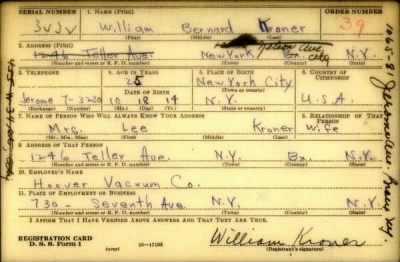 SERIAL NUMBER 1. NAME (Print) ORDER NUMBER
William Bernard Kroner 39
2. ADDRESS (Print)
1246 Teller Ave. New York Bx. N.Y.
(Number and street or R. F. D. number) (Town) (County) (State)
3. TELEPHONE 4. AGE IN YEARS 5. PLACE OF BIRTH 6. COUNTRY OF CITIZENSHIP
25 New York City
DATE OF BIRTH
Jerome 7-3230 10 18 14 N.Y. U.S.A.
(Exchange) (Number) (Mo.) (Day) (Yr.) (State or country)
7. NAME OF PERSON WHO WILL ALWAYS KNOW YOUR ADDRESS 8. RELATIONSHIP OF THAT PERSON
Mrs. Lee Kroner Wife
(Mr., Mrs., Miss) (First) (Middle) (Last)
9. ADDRESS OF THAT PERSON
1246 Teller Ave. N.Y. Bx. N.Y.
(Number and street or R. F. D. number) (Town) (County) (State)
10. EMPLOYER'S NAME
Hoover Vacuum Co.
11. PLACE OF EMPLOYMENT OR BUSINESS
730 - Seventh Ave. N.Y. N.Y. N.Y.
(Number and street or R. F. D. number) (Town) (County) (State)
I AFFIRM THAT I HAVE VERIFIED ABOVE ANSWERS AND THAT THEY ARE TRUE.
REGISTRATION CARD
D. S. S. Form 1 William Kroner
(Registrant's signature)